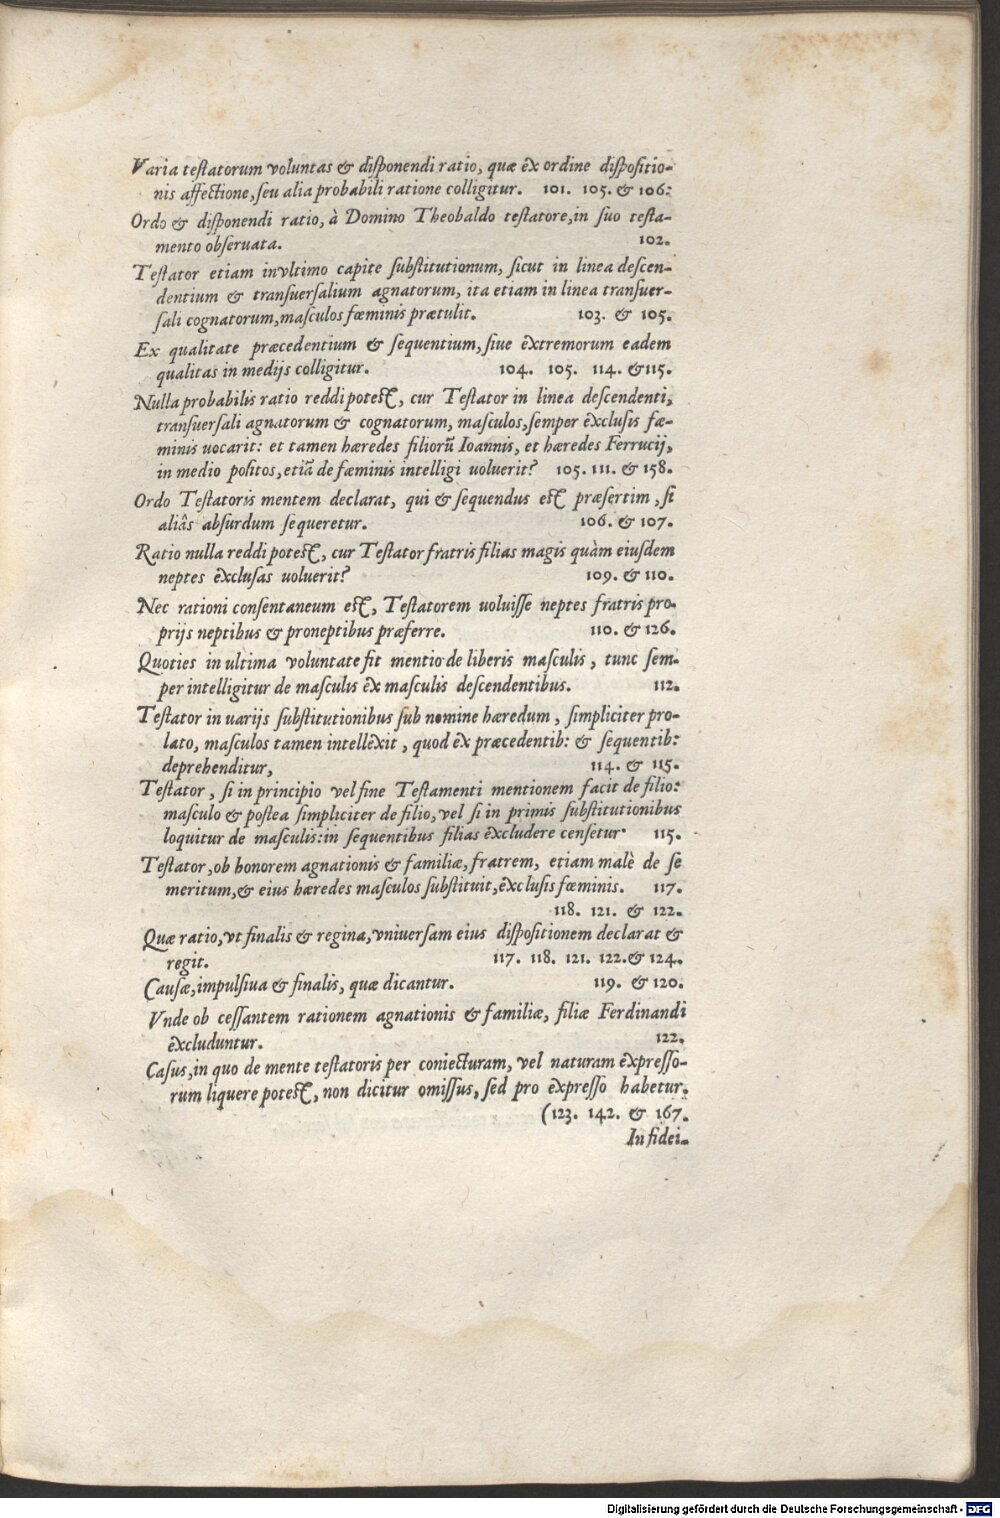 Varia testatorum voluntas & disponendi ratio, quæ ex ordine dispositio-
nis affectione, seu alia probabili ratione colligitur. 101. 105. & 106.
Ordo & disponendi ratio, à Domino Theobaldo testatore, in suo testa-
mento obseruata. 102.
Testator etiam in vltimo capite substitutionum, sicut in linea descen-
dentium & transuersalium agnatorum, ita etiam in linea transuer-
sali cognatorum, masculos fœminis prætulit. 103. & 105.
Ex qualitate præcedentium & sequentium, siue extremorum eadem
qualitas in medijs colligitur. 104. 105. 114. & 115.
Nulla probabilis ratio reddi potest, cur Testator in linea descendenti,
transuersali agnatorum & cognatorum, masculos, semper exclusis fœ-
minis uocarit: et tamen hæredes filiorũ Ioannis, et hæredes Ferrucij,
in medio positos, etiã de fœminis intelligi uoluerit? 105. 111. & 158.
Ordo Testatoris mentem declarat, qui & sequendus est præsertim, si
aliâs absurdum sequeretur. 106. & 107.
Ratio nulla reddi potest, cur Testator fratris filias magis quàm eiusdem
neptes exclusas uoluerit? 109. & 110.
Nec rationi consentaneum est, Testatorem uoluisse neptes fratris pro-
prijs neptibus & proneptibus præferre. 110. & 126.
Quoties in ultima voluntate fit mentio de liberis masculis, tunc sem-
per intelligitur de masculis ex masculis descendentibus. 112.
Testator in uarijs substitutionibus sub nomine hæredum, simpliciter pro-
lato, masculos tamen intellexit, quod ex præcedentib: & sequentib:
deprehenditur, 114. & 115.
Testator, si in principio vel fine Testamenti mentionem facit de filio:
masculo & postea simpliciter de filio, vel si in primis substitutionibus
loquitur de masculis: in sequentibus filias excludere censetur. 115.
Testator, ob honorem agnationis & familiæ, fratrem, etiam malè de se
meritum, & eius hæredes masculos substituit, exclusis fœminis. 117.
118. 121. & 122.
Quæ ratio, vt finalis & regina, vniuersam eius dispositionem declarat &
regit. 117. 118. 121. 122. & 124.
Causæ, impulsiua & finalis, quæ dicantur. 119. & 120.
Vnde ob cessantem rationem agnationis & familiæ, filiæ Ferdinandi
excluduntur. 122.
Casus, in quo de mente testatoris per coniecturam, vel naturam expresso-
rum liquere potest, non dicitur omissus, sed pro expresso habetur.
(123. 142. & 167.
In fidei-
Digitalisierung gefördert durch die Deutsche Forschungsgemeinschaft - DFG